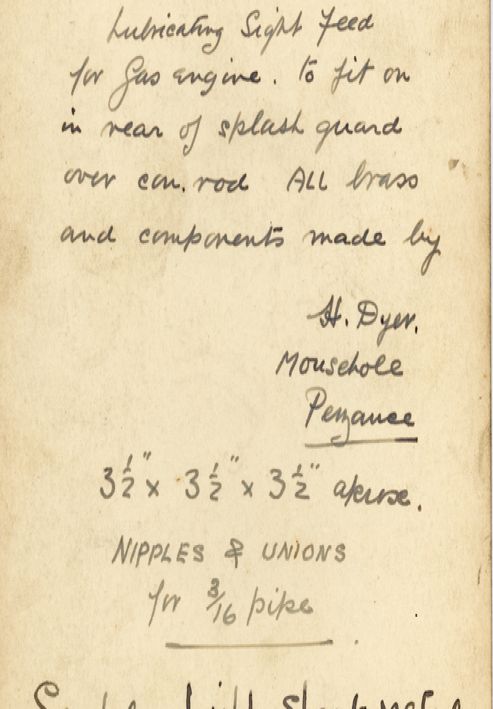 Lubricating Sight Feed
for Gas engine. to fit on
in rear of splash guard
over con. rod ALL brass
and components made by
H. Dyer.
Mousehole
Penzance
3½" x 3½" x 3½" aprox.
NIPPLES & UNIONS
for 3/16 pipe